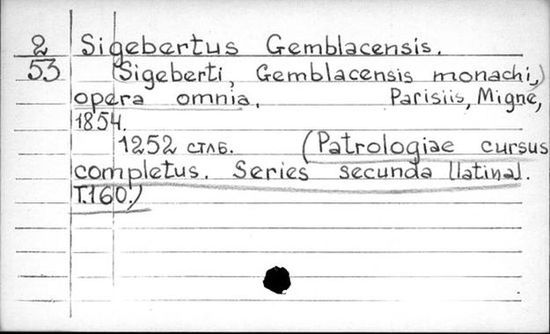 2 Sigebertus Gemblacensis.
53 (Sigeberti, Gemblacensis monachi,)
opera omnia. Parisiis, Migne,
1854.
1252 стлб. (Patrologiae cursus
completus. Series secunda [latina].
T.160.)